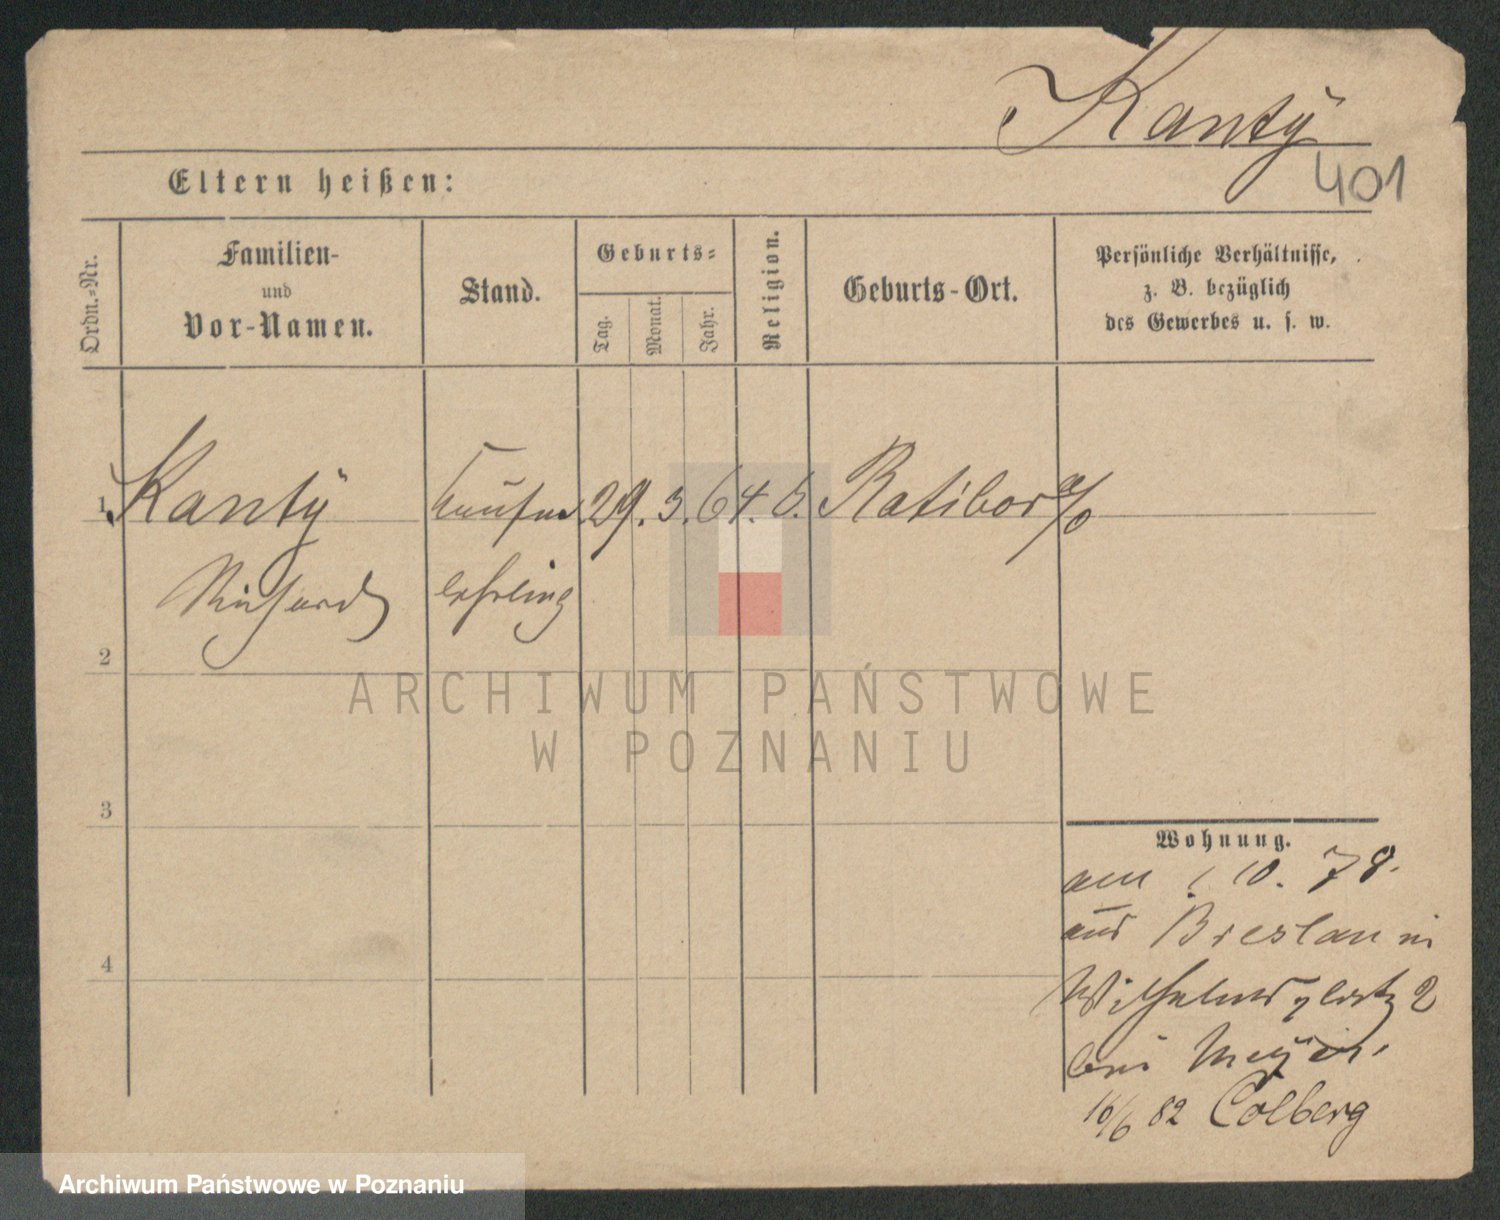 Kantÿ
401
Eltern heißen:
Ordn.-Nr.
Familien-
und
Vor-Namen.
Stand.
Geburts-
Tag.
Monat.
Jahr.
Religion.
Geburts-Ort.
Persönliche Verhältnisse,
z. B. bezüglich
des Gewerbes u. s. w.
1 Kantÿ Kaufm 29. 3. 64. Ratibor a/O
Richard lehrling
2
3
4
Wohnung.
am 1. 10. 78.
aus Breslau in
Wilhelmsplatz 2
bei Meÿer.
16/6 82 Colberg
ARCHIWUM PAŃSTWOWE
W POZNANIU
Archiwum Państwowe w Poznaniu